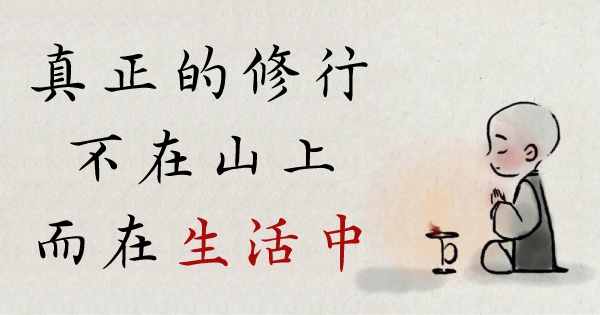 真正的修行
不在山上
而在生活中